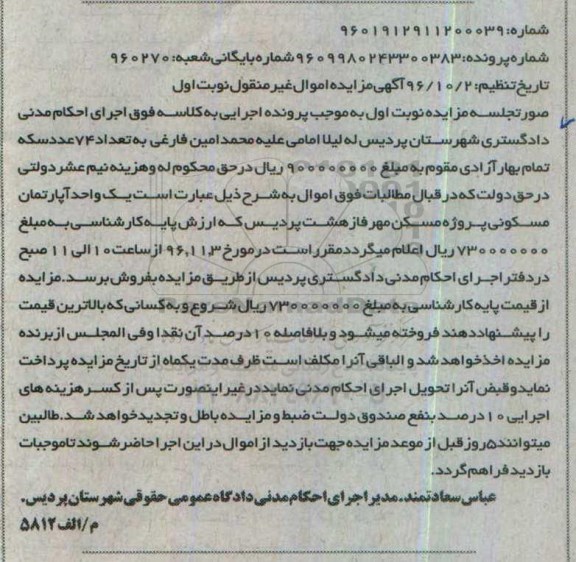 شماره: ۹۶۰۱۹۱۲۹۱۱۲۰۰۰۳۹
شماره پرونده: ۹۶۰۹۹۸۰۲۴۳۳۰۰۳۸۳ شماره بایگانی شعبه: ۹۶۰۲۷۰
تاریخ تنظیم: ۹۶/۱۰/۲ آگهی مزایده اموال غیر منقول نوبت اول
صورتجلسه مزایده نوبت اول به موجب پرونده اجرایی به کلاسه فوق اجرای احکام مدنی
دادگستری شهرستان پردیس له لیلا امامی علیه محمد امین فارغی به تعداد ۷۴ عدد سکه
تمام بهار آزادی مقوم به مبلغ ۹۰۰۰۰۰۰۰۰ ریال در حق محکوم له و هزینه نیم عشر دولتی
در حق دولت که در قبال مطالبات فوق اموال به شرح ذیل عبارت است یک واحد آپارتمان
مسکونی پروژه مسکن مهر فاز هشت پردیس که ارزش پایه کارشناسی به مبلغ
۷۳۰۰۰۰۰۰۰ ریال اعلام میگردد مقرر است در مورخ ۹۶,۱۱,۳ از ساعت ۱۰ الی ۱۱ صبح
در دفتر اجرای احکام مدنی دادگستری پردیس از طریق مزایده بفروش برسد. مزایده
از قیمت پایه کارشناسی به مبلغ ۷۳۰۰۰۰۰۰۰ ریال شروع و به کسانی که بالاترین قیمت
را پیشنهاد دهند فروخته میشود و بلافاصله ۱۰ درصد آن نقدا و فی المجلس از برنده
مزایده اخذ خواهد شد و الباقی آنرا مکلف است ظرف مدت یکماه از تاریخ مزایده پرداخت
نماید و قبض آنرا تحویل اجرای احکام مدنی نماید در غیر اینصورت پس از کسر هزینه های
اجرایی ۱۰ درصد بنفع صندوق دولت ضبط و مزایده باطل و تجدید خواهد شد. طالبین
میتوانند ۵ روز قبل از موعد مزایده جهت بازدید از اموال در این اجرا حاضر شوند تا موجبات
بازدید فراهم گردد.
عباس سعادتمند. مدیر اجرای احکام مدنی دادگاه عمومی حقوقی شهرستان پردیس.
م/الف ۵۸۱۲